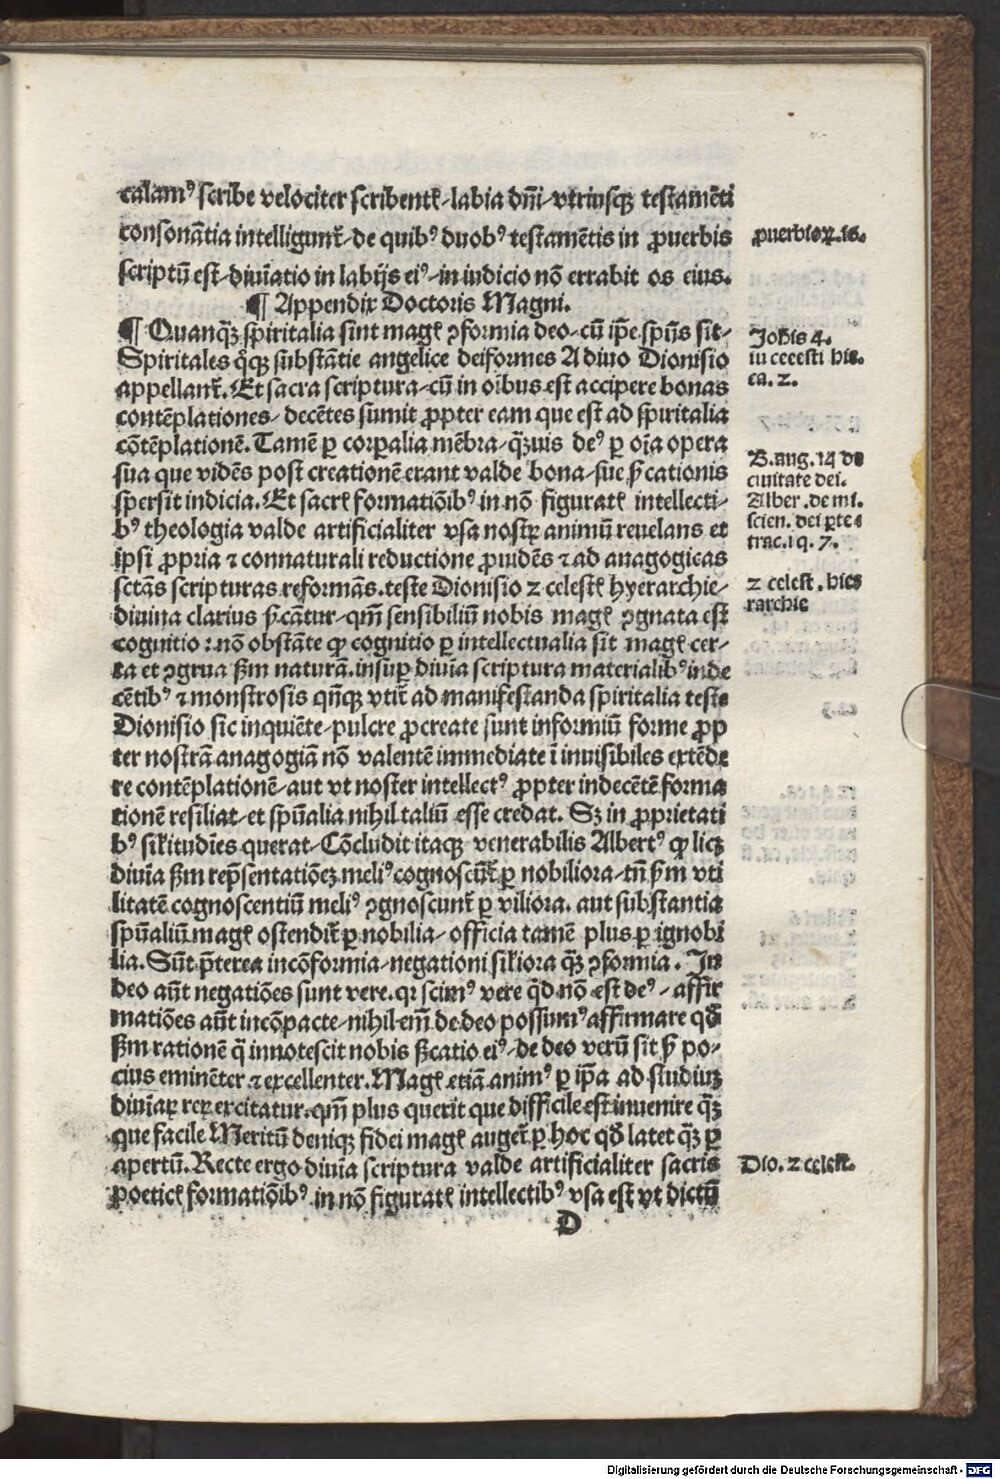 calamꝰ scribe velociter scribentꝭ-labia dñi-vtriusqꝫ testamēti
consonātia intelligunt᷑-de quibꝰ duobꝰ testamētis in ꝓuerbis
scriptū est-diuīatio in labijs eiꝰ-in iudicio nō errabit os eius.
¶ Appendix Doctoris Magni.
¶ Quanqꝫ̄ spiritalia sint magꝭ ꝯformia deo-cū ip̄e sp̄ūs sit-
Spiritales q̊qꝫ sūbstātie angelice deiformes A diuo Dionisio
appellant᷑. Et sacra scriptura-cū in oībus est accipere bonas
contēplationes-decētes sumit ꝓpter eam que est ad sp̄iritalia
cōtēplationē. Tamē ꝑ corꝑalia mēbra-qꝫ̄uis deꝰ ꝑ oīa opera
sua que vidēs post creationē erant valde bona-sue p̄cationis
spersit indicia. Et sacrꝭ formatiōībꝰ in nō figuratꝭ intellecti-
bꝰ theologia valde artificialiter vsa nostꝝ animū reuelans et
ipsi ꝓpria ⁊ connaturali reductione ꝓuidēs ⁊ ad anagogicas
sctās scripturas reformās. teste Dionisio 2 celestꝭ hyerarchie-
diuina clarius p̄cātur-qm̄ sensibiliū nobis magꝭ ꝯgnata est
cognitio: nō obstāte ꝙ cognitio ꝑ intellectualia sit magꝭ cer-
ta et ꝯgrua ẜm naturā. insuꝑ diuīa scriptura materialibꝰ inde
cētibꝰ ⁊ monstrosis qn̄qꝫ vtit᷑ ad manifestanda spiritalia teste
Dionisio sic inquiēte-pulcre ꝓcreate sunt informiū forme ꝓp
ter nostrā anagogiā nō valentē immediate ī inuisibiles extēde
re contēplationē-aut vt noster intellectꝰ ꝓpter indecētē forma
tionē resiliat-et sp̄ūalia nihil taliū esse credat. Sꝫ in ꝓprietati
bꝰ sil̄itudīes querat-Cōcludit itaqꝫ venerabilis Albertꝰ ꝙ licꝫ
diuīa ẜm rep̄sentatiōeꝫ meliꝰ cognoscūt᷑ ꝑ nobiliora-tn̄ ẜm vti
litatē cognoscentiū meliꝰ ꝯgnoscunt᷑ ꝑ viliora. aut substantia
sp̄ūaliū magꝭ ostendit᷑ ꝑ nobilia-officia tamē plus ꝑ ignobi
lia. Sūt p̄terea incōformia-negationi sil̄iora qꝫ̄ ꝯformia. In
deo aūt negatiōes sunt vere. qꝛ scimꝰ vere qd̄ nō est deꝰ-affir
matiōes aūt incōpacte-nihil em̄ de deo possumꝰ affirmare qd̄
ẜm rationē q̄ innotescit nobis p̄catio eiꝰ-de deo verū sit ẜ po-
cius eminēter ⁊ excellenter. Magꝭ etiā animꝰ ꝑ ip̄a ad studiuꝫ
diuīaꝝ reꝝ excitatur. qm̄ plus querit que difficile est inuenire qꝫ̄
que facile Meritū deniqꝫ fidei magꝭ auget᷑ ꝑ hoc qd̄ latet qꝫ̄ ꝑ
apertū. Recte ergo diuīa scriptura valde artificialiter sacris
poeticꝭ formatiōībꝰ in nō figuratꝭ intellectibꝰ vsa est vt dictū
D
ꝓuerbioꝝ. 16.
Johīs 4.
in celesti hie.
ca. 2.
B. aug. 14 de
ciuitate dei.
Alber. de mi.
scien. dei ꝑte 1
trac. 1 q. 7.
2 celest. hie
rarchie
Dio. 2 celest.
Digitalisierung gefördert durch die Deutsche Forschungsgemeinschaft - DFG